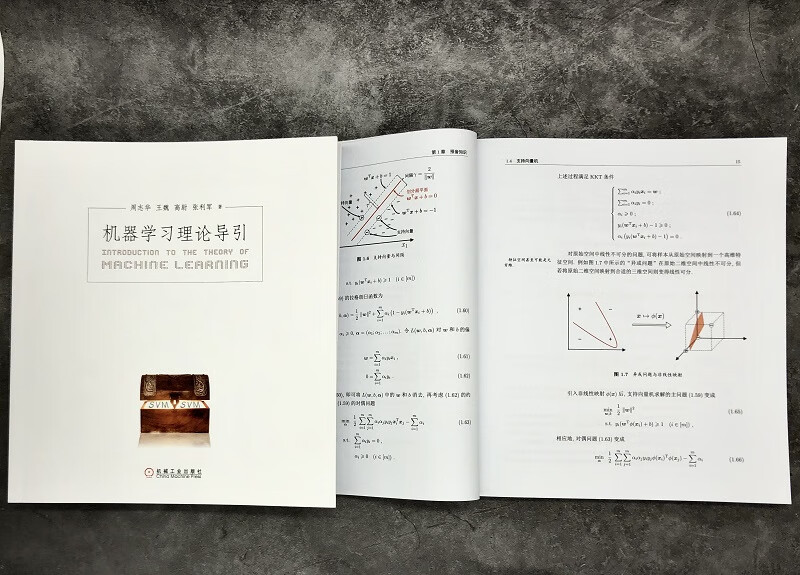 周志华 王魏 高尉 张利军 著
机器学习理论导引
INTRODUCTION TO THE THEORY OF
MACHINE LEARNING
SVM SVM
机械工业出版社
China Machine Press
第 1 章 预备知识
wᵀx + b = 1
间隔 γ = 2/‖w‖
划分超平面
wᵀx + b = 0
wᵀx + b = −1
x₁
图 1.6 支持向量与间隔
s.t. yᵢ(wᵀxᵢ + b) ⩾ 1 (i ∈ [m])
的拉格朗日函数为
(b, α) = 1/2 ‖w‖² + ∑ᵢ₌₁ᵐ αᵢ (1 − yᵢ(wᵀxᵢ + b)) , (1.60)
αᵢ ⩾ 0, α = (α₁; α₂; . . . ; αₘ). 令 L(w, b, α) 对 w 和 b 的偏
w = ∑ᵢ₌₁ᵐ αᵢyᵢxᵢ , (1.61)
0 = ∑ᵢ₌₁ᵐ αᵢyᵢ . (1.62)
即可将 L(w, b, α) 中的 w 和 b 消去, 再考虑 (1.62) 的约
(1.59) 的对偶问题
min α 1/2 ∑ᵢ₌₁ᵐ ∑ⱼ₌₁ᵐ αᵢαⱼyᵢyⱼxᵢᵀxⱼ − ∑ᵢ₌₁ᵐ αᵢ (1.63)
s.t. ∑ᵢ₌₁ᵐ αᵢyᵢ = 0 ,
αᵢ ⩾ 0 (i ∈ [m]) .
1.4 支持向量机
上述过程满足 KKT 条件
∑ᵢ₌₁ᵐ αᵢyᵢxᵢ = w ;
∑ᵢ₌₁ᵐ αᵢyᵢ = 0 ;
αᵢ ⩾ 0 ;
yᵢ(wᵀxᵢ + b) − 1 ⩾ 0 ;
αᵢ (yᵢ(wᵀxᵢ + b) − 1) = 0 .
(1.64)
对原始空间中线性不可分的问题, 可将样本从原始空间映射到一个高维特
征空间. 例如图 1.7 中所示的 "异或问题" 在原始二维空间中线性不可分, 但
若将原始二维空间映射到合适的三维空间则变得线性可分.
x ↦ ϕ(x)
图 1.7 异或问题与非线性映射
引入非线性映射 ϕ(x) 后, 支持向量机求解的主问题 (1.59) 变成
min w,b 1/2 ‖w‖² (1.65)
s.t. yᵢ(wᵀϕ(xᵢ) + b) ⩾ 1 (i ∈ [m]) ,
相应地, 对偶问题 (1.63) 变成
min α 1/2 ∑ᵢ₌₁ᵐ ∑ⱼ₌₁ᵐ αᵢαⱼyᵢyⱼϕ(xᵢ)ᵀϕ(xⱼ) − ∑ᵢ₌₁ᵐ αᵢ (1.66)